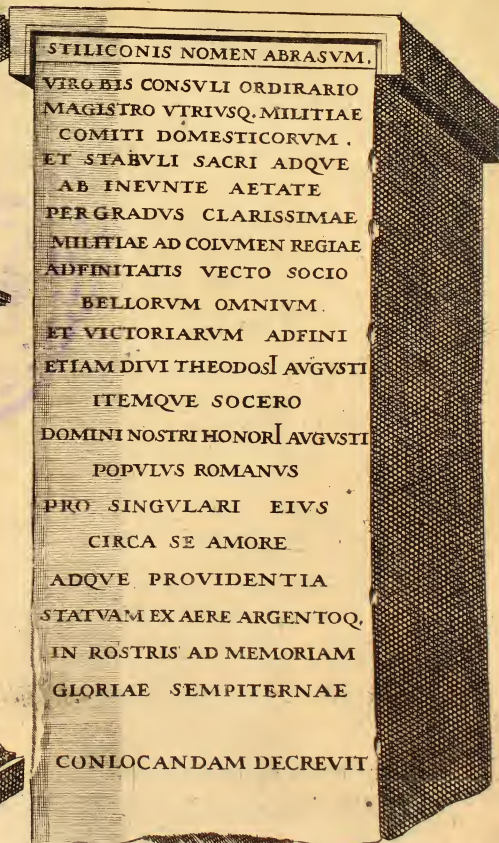 STILICONIS NOMEN ABRASVM.
VIRO BIS CONSVLI ORDIRARIO
MAGISTRO VTRIVSQ. MILITIAE
COMITI DOMESTICORVM .
ET STABVLI SACRI ADQVE
AB INEVNTE AETATE
PER GRADVS CLARISSIMAE
MILITIAE AD COLVMEN REGIAE
ADFINITATIS VECTO SOCIO
BELLORVM OMNIVM .
ET VICTORIARVM ADFINI
ETIAM DIVI THEODOSI AVGVSTI
ITEMQVE SOCERO
DOMINI NOSTRI HONORI AVGVSTI
POPVLVS ROMANVS
PRO SINGVLARI EIVS
CIRCA SE AMORE
ADQVE PROVIDENTIA
STATVAM EX AERE ARGENTOQ.
IN ROSTRIS AD MEMORIAM
GLORIAE SEMPITERNAE
CONLOCANDAM DECREVIT